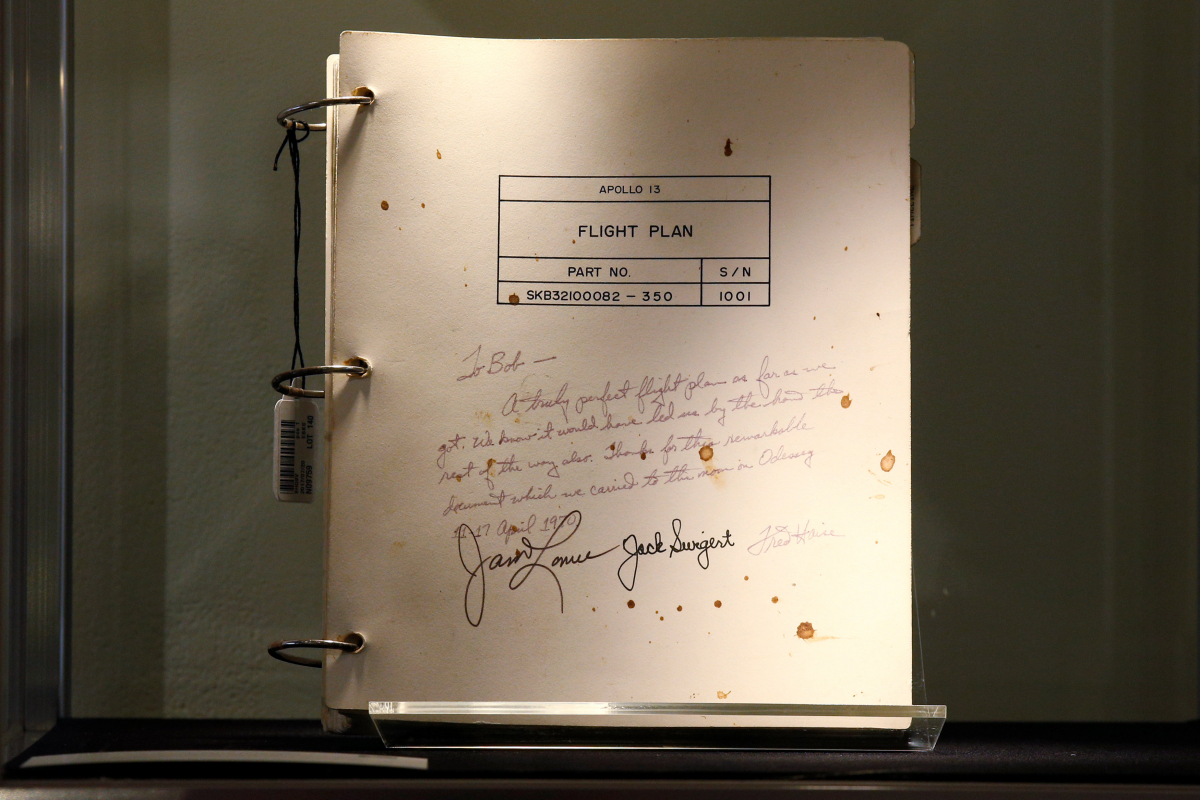 APOLLO 13
FLIGHT PLAN
PART NO. S/N
SKB32100082-350 1001
To Bob —
A truly perfect flight plan as far as we
got. We know it would have led us by the hand the
rest of the way also. Thanks for this remarkable
document which we carried to the moon in Odessey
11-17 April 1970
James Lovell Jack Swigert Fred Haise
LOT 140